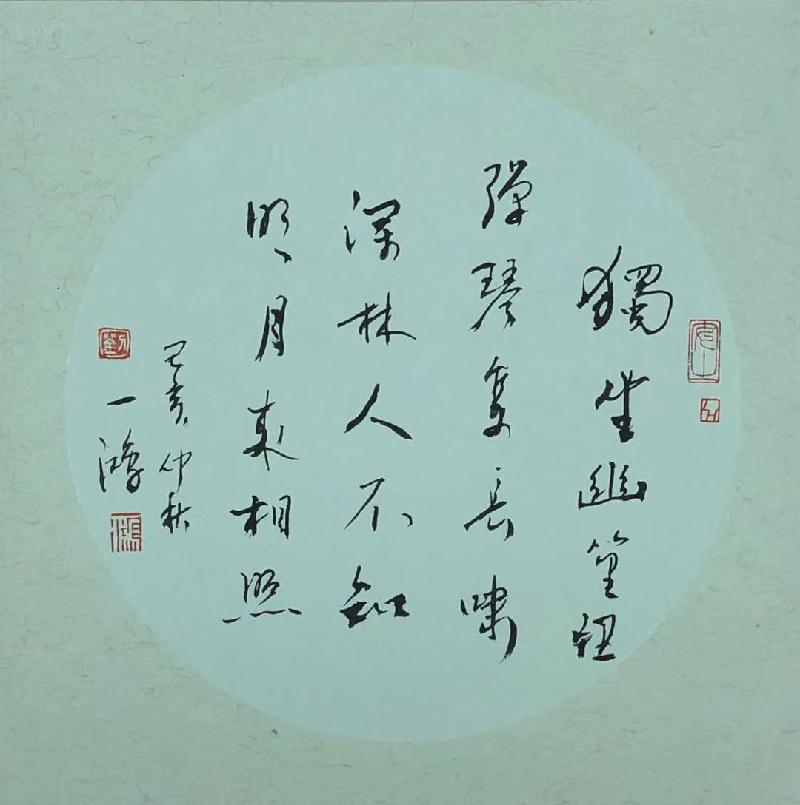 獨坐幽篁裡
彈琴復長嘯
深林人不知
明月來相照
己亥仲秋
一鴻
劉
鴻